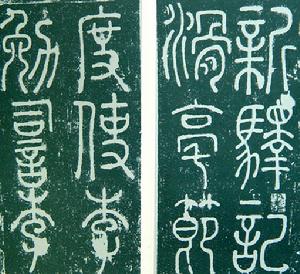 新驛記
滑亳節
度使李
勉詞李